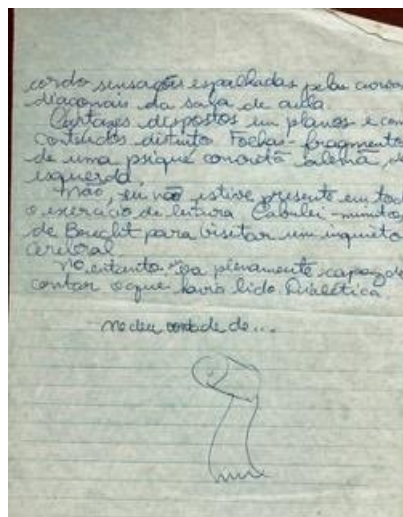 cordo sensações espalhadas pelas
diagonais da sala de aula.
Cartazes dispostos em planos e com
conteúdos distinto Fochas-fragmento
de uma psique concreta alemã, de
esquerda.
Não, eu não estive presente em tod
o exercício de leitura. Cabulei-minutos
de Brecht para visitar um inquieto
cerebral
No entanto era plenamente capaz de
contar o que havia lido. Dialética.
Me deu vontade de...